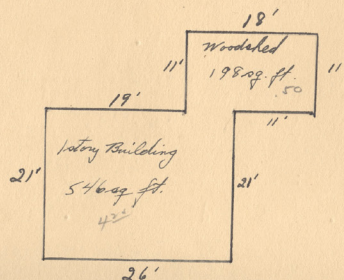 18'
Woodshed
11' 198 sq. ft. 11
.50
19' 11'
1 story Building
21' 546 sq ft. 21'
26'